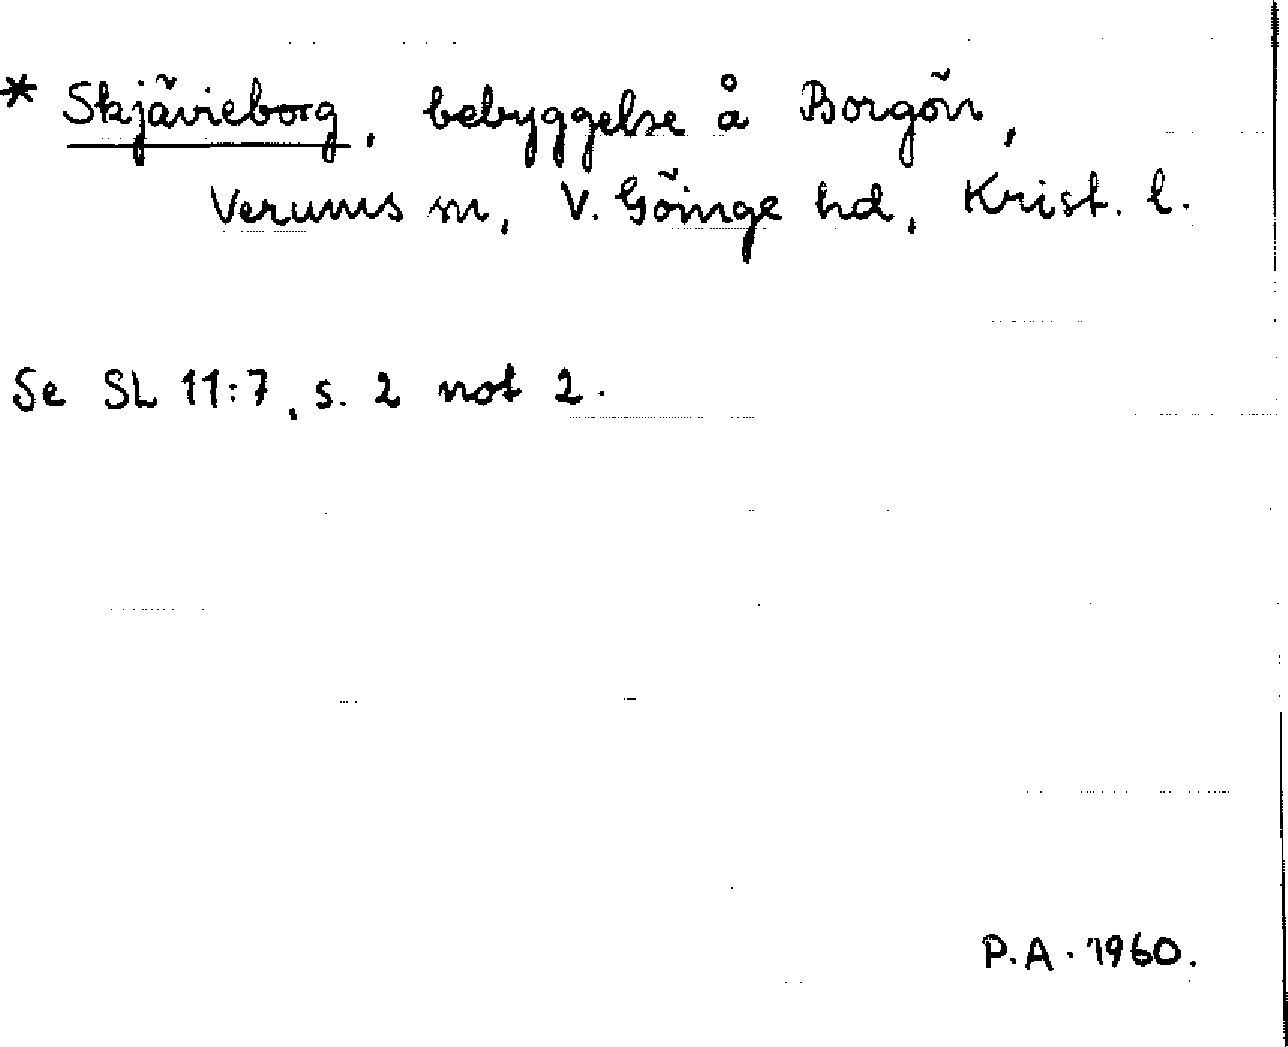 * Skjävieborg, bebyggelse å Borgön,
Verums sn, V. Göinge hd, Krist. l.
Se SL 11:7, s. 2 not 2.
P.A. 1960.